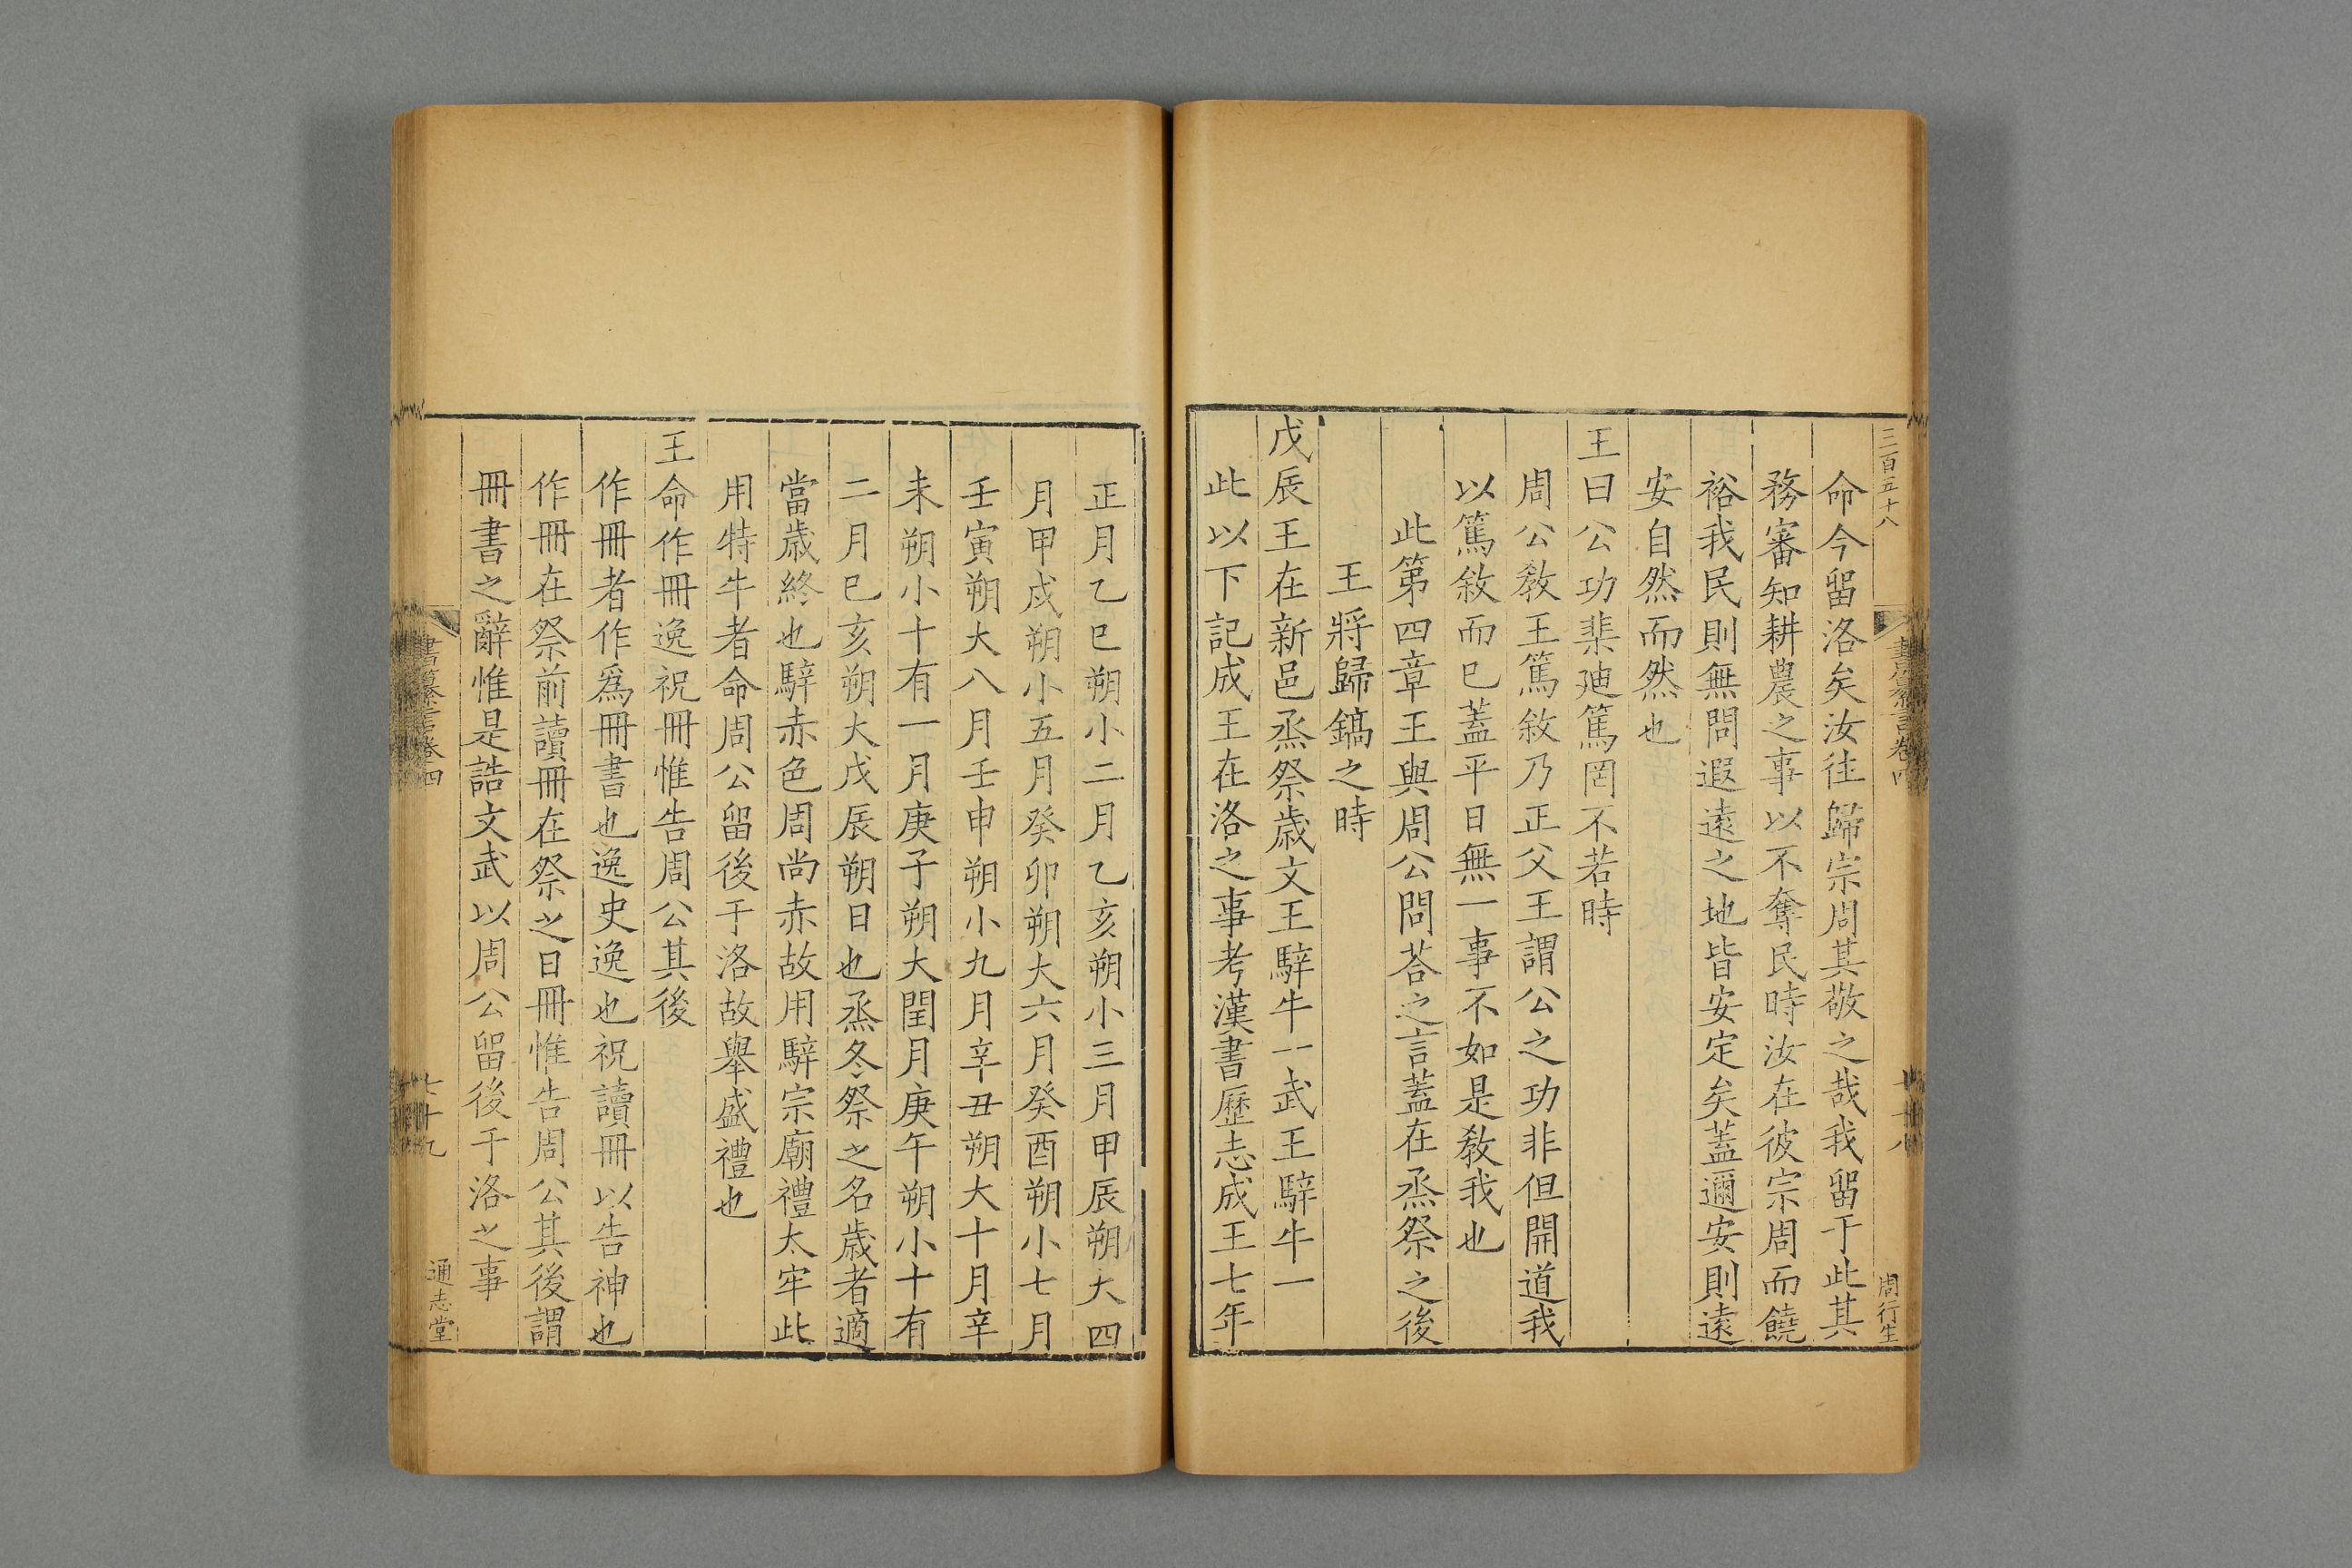 三百五十八
書纂言卷四
周行生
命今留洛矣汝徃歸宗周其敬之哉我留于此其
務審知耕農之事以不奪民時汝在彼宗周而饒
裕我民則無問遐遠之地皆安定矣蓋邇安則遠
安自然而然也
王曰公功棐迪篤罔不若時
周公敎王篤敘乃正父王謂公之功非但開道我
以篤敘而已蓋平日無一事不如是敎我也
此第四章王與周公問荅之言蓋在烝祭之後
王將歸鎬之時
戊辰王在新邑烝祭歲文王騂牛一武王騂牛一
此以下記成王在洛之事考漢書歷志成王七年
正月乙巳朔小二月乙亥朔小三月甲辰朔大四
月甲戌朔小五月癸卯朔大六月癸酉朔小七月
壬寅朔大八月壬申朔小九月辛丑朔大十月辛
未朔小十有一月庚子朔大閏月庚午朔小十有
二月巳亥朔大戊辰朔日也烝冬祭之名歲者適
當歲終也騂赤色周尚赤故用騂宗廟禮太牢此
用特牛者命周公留後于洛故舉盛禮也
王命作冊逸祝冊惟告周公其後
作冊者作爲冊書也逸史逸也祝讀冊以告神也
作冊在祭前讀冊在祭之日冊惟告周公其後謂
冊書之辭惟是誥文武以周公留後于洛之事
書纂言卷四
七十九
通志堂